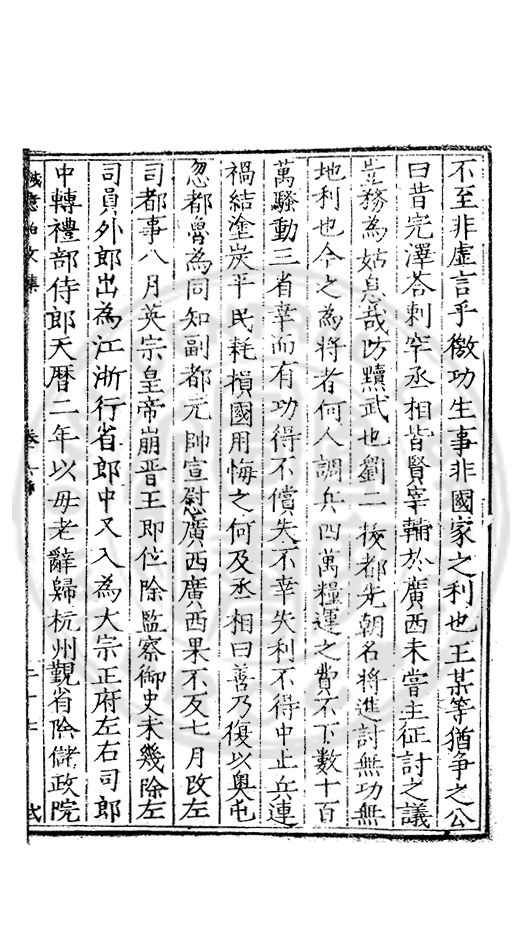 不至非虛言乎徼功生事非國家之利也王某等猶爭之公
曰昔完澤荅剌罕丞相皆賢宰輔於廣西未嘗主征討之議
豈務為姑息哉防黷武也劉二㧞都先朝名將進討無功無
地利也今之為將者何人調兵四萬糧運之費不下數十百
萬騷動三省幸而有功得不償失不幸失利不得中止兵連
禍結塗炭平民耗損國用悔之何及丞相曰善乃復以奥屯
忽都魯為同知副都元帥宣慰廣西廣西果不反七月改左
司都事八月英宗皇帝崩晋王即位除監察御史未幾除左
司員外郎出為江浙行省郎中又入為大宗正府左右司郎
中轉禮部侍郎天曆二年以母老辭歸杭州觀省除儲政院
誠意伯文集